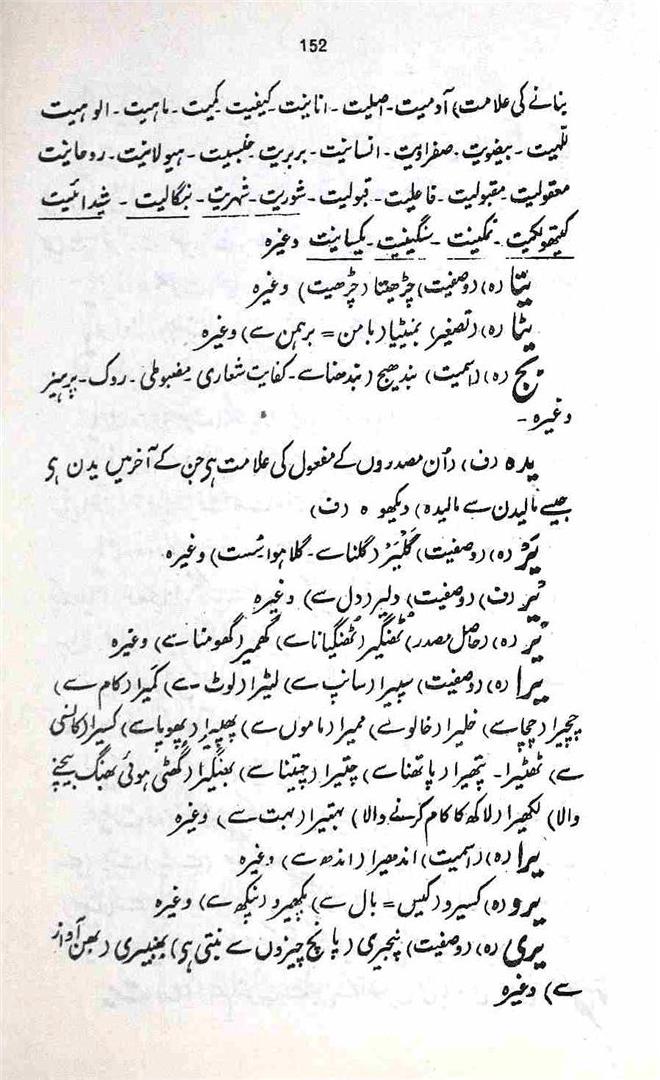 152
بنانے کی علامت) آدمیت۔ اصلیت۔ انانیت۔ کیفیت۔ کمیت۔ ماہیت۔ الوہیت
للہیت۔ بیضویت۔ صفراویت۔ انسانیت۔ بربریت۔ جنسیت۔ ہیولانیت۔ روحانیت
معقولیت۔ مقبولیت۔ فاعلیت۔ قبولیت۔ شوریت۔ شہریت۔ بنگالیت۔ شیدائیت
کیتھولکیت۔ نمکینت۔ سنگینیت۔ یکسانیت وغیرہ
یتا (ہ) (وصفیت) چڑھیتا (چڑھیت) وغیرہ
یٹا (ہ) (تصغیر) بمنیٹا (بامن = برہمن سے) وغیرہ
یج (ہ) (اسمیت) بندھیج (بندھنا سے۔ کفایت شعاری۔ مضبوطی۔ روک۔ پرہیز
وغیرہ۔
یدہ (ف) (اُن مصدروں کے مفعول کی علامت ہی جن کے آخر میں یدن ہی
جیسے مالیدن سے مالیدہ) دیکھو ہ (ف)
یَڑ (ہ) (وصفیت) گلیَڑ (گلنا سے۔ گلا ہوا سُست) وغیرہ
یر (ف) (وصفیت) دلیر (دل سے) وغیرہ
یر (ہ) (حاصل مصدر) ٹھنگیر (ٹھنگیانا سے) گھمیر (گھومنا سے) وغیرہ
یرا (ہ) (وصفیت) سپیرا (سانپ سے) لٹیرا (لوٹ سے) کمیرا (کام سے)
چچیرا (چچا سے) خلیرا (خالو سے) ممیرا (ماموں سے) پھپیرا (پھوپا سے) کسیرا (کانسی
سے) ٹھٹیرا۔ پتھیرا (پاتھنا سے) چتیرا (چیتنا سے) بھنگیرا (گھٹی ہوئی بھنگ بیچنے
والا) لکھیرا (لاکھ کا کام کرنے والا) بہتیرا (بہت سے) وغیرہ
یرا (ہ) (اسمیت) اندھیرا (اندھ سے) وغیرہ
یرو (ہ) کسیرو (کیس = بال سے) پکھیرو (پنکھ سے) وغیرہ
یری (ہ) (وصفیت) پنجیری (پانچ چیزوں سے بنتی ہی) بھنبیری (بھن آواز
سے) وغیرہ